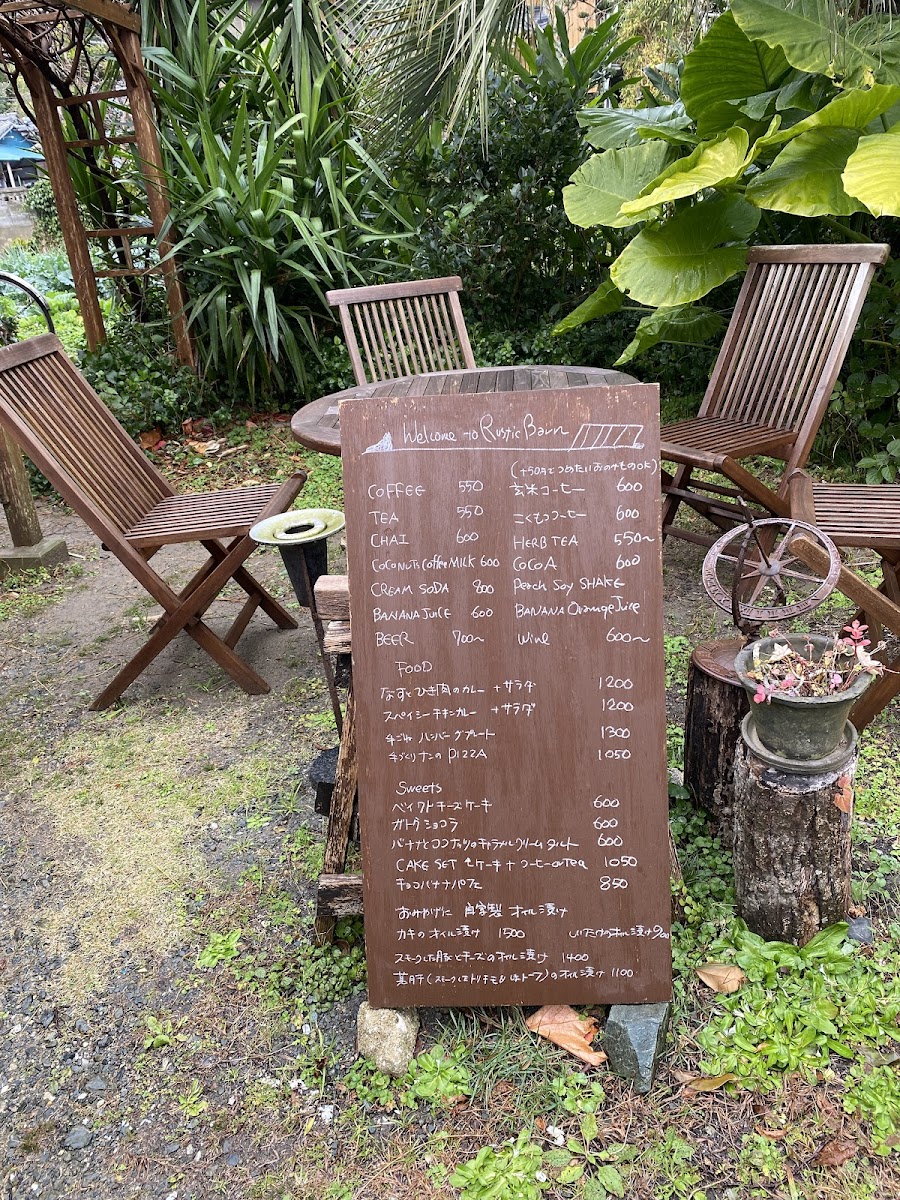 Welcome to Rustic Barn
(+50円でつめたいおのみものOK)
COFFEE 550 玄米コーヒー 600
TEA 550 こくもつコーヒー 600
CHAI 600 HERB TEA 550~
COCONUTS Coffee MILK 600 COCOA 600
CREAM SODA 800 Peach Soy SHAKE
BANANA JUICE 600 BANANA Orange Juice
BEER 700~ Wine 600~
FOOD
なすとひき肉のカレー +サラダ 1200
スペイシーチキンカレー +サラダ 1200
手ごねハンバーグプレート 1300
手づくりナンのPIZZA 1050
Sweets
ベイクドチーズケーキ 600
ガトウショコラ 600
バナナとココナッツのキャラメルクリームタルト 600
CAKE SET ケーキ+コーヒーorTEA 1050
チョコバナナパフェ 850
おみやげに 自家製 オイル漬け
カキのオイル漬け 1500 しいたけのオイル漬け 900
スモークした豚とチーズのオイル漬け 1400
(スモークしたトリ)のオイル漬け 1100